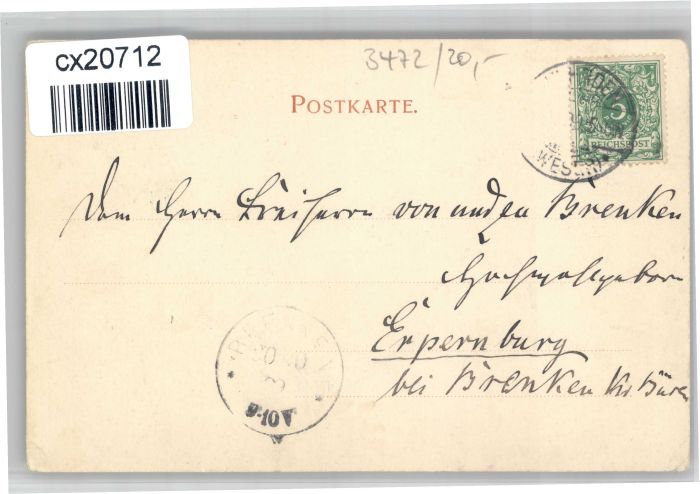 cx20712
3472/20,-
POSTKARTE.
5
REICHSPOST
WESER
Dem Herrn Freiherrn von und zu Brenken
Hochwohlgeboren
Erpernburg
bei Brenken Krs Büren
BRENKEN
9-10V